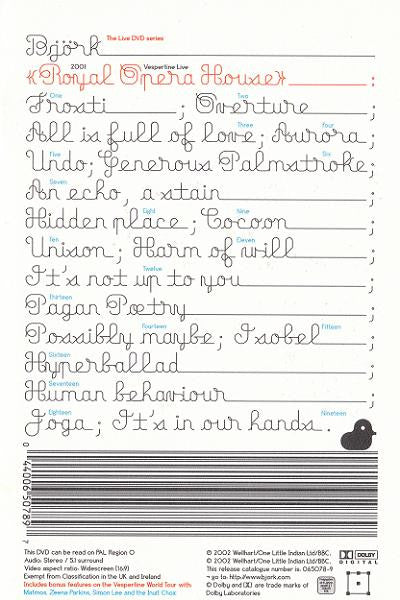 Björk The Live DVD series
2001 Vespertine Live
«Royal Opera House» ;
One Two
Frosti ; Overture
Three Four
All is full of love; Aurora;
Five Six
Undo; Generous Palmstroke;
Seven
An echo, a stain ;
Eight Nine
Hidden place; Cocoon ;
Ten Eleven
Unison; Harm of will ;
Twelve
It's not up to you ;
Thirteen
Pagan Poetry ;
Fourteen Fifteen
Possibly maybe; Isobel ;
Sixteen
Hyperballad ;
Seventeen
Human behaviour ;
Eighteen Nineteen
Joga; It's in our hands.
0 44006 50789 7
This DVD can be read on PAL Region 0
Audio: Stereo / 5.1 surround
Video aspect ratio: Widescreen (16:9)
Exempt from Classification in the UK and Ireland
Includes bonus features on the Vespertine World Tour with
Matmos, Zeena Parkins, Simon Lee and the Inuit Choir
© 2002 Wellhart/One Little Indian Ltd/BBC.
© 2002 Wellhart/One Little Indian Ltd/BBC.
This release catalogue number is. 065078-9
¬ go to: http://www.bjork.com
© Dolby and are trade marks of
Dolby Laboratories
DOLBY
DIGITAL